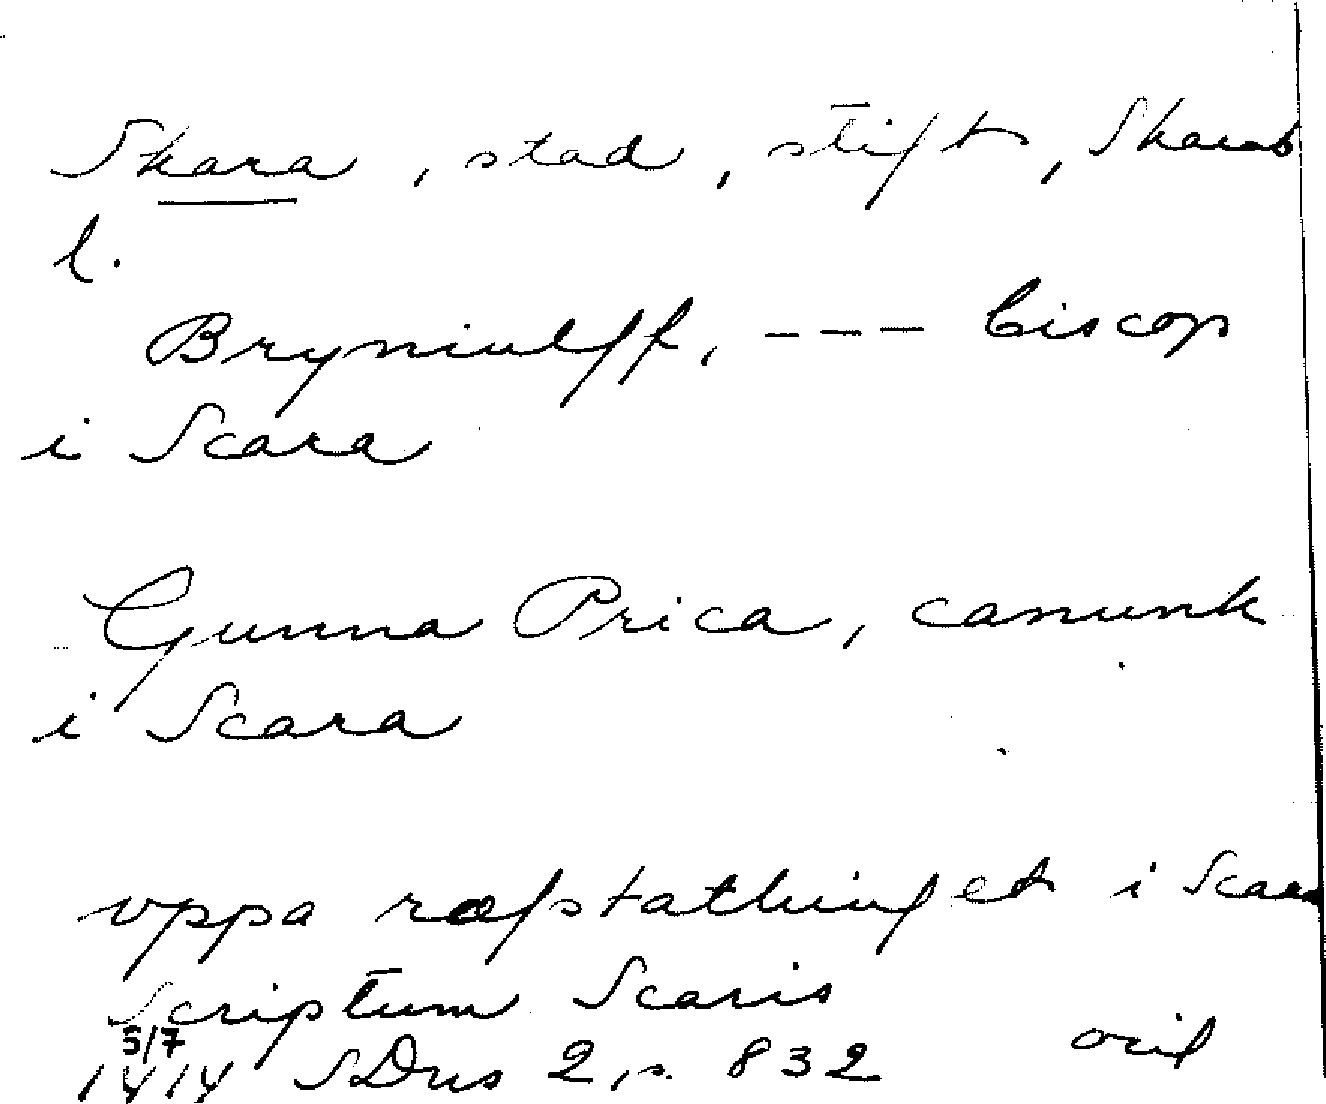 Skara, stad, stift, Skarab
l.
Bryniulff, --- biscop
i Scara
Gunna Prica, canunk
i Scara
vppa ræfstathinget i Scara
Scriptum Scaris
5/7
1414 SDns 2, s. 832 orig